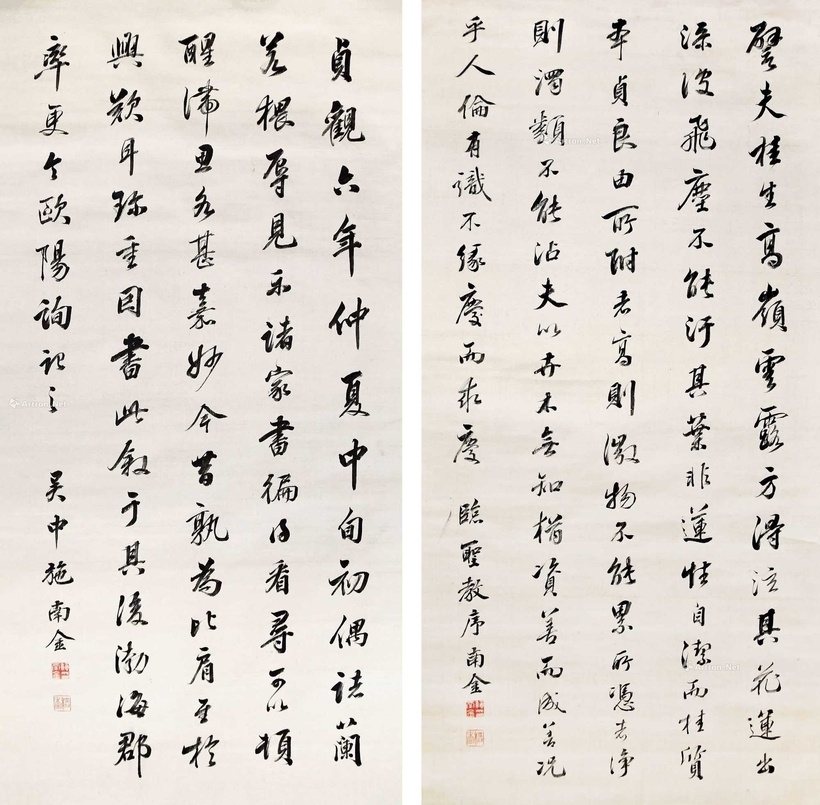 譬夫桂生高嶺雲露方得泫其花蓮出
淥波飛塵不能汙其葉非蓮性自潔而桂質
本貞良由所附者高則微物不能累所憑者淨
則濁類不能沾夫以卉木無知猶資善而成善况
乎人倫有識不緣慶而求慶 臨聖教序南金
貞觀六年仲夏中旬初偶詣蘭
若根辱見示諸家書徧得看尋可以頓
醒滯思各甚嘉妙今昔孰為比肩至於
興歎耳珎重因書此叙于其後渤海郡
率更令歐陽詢記之 吳中施南金